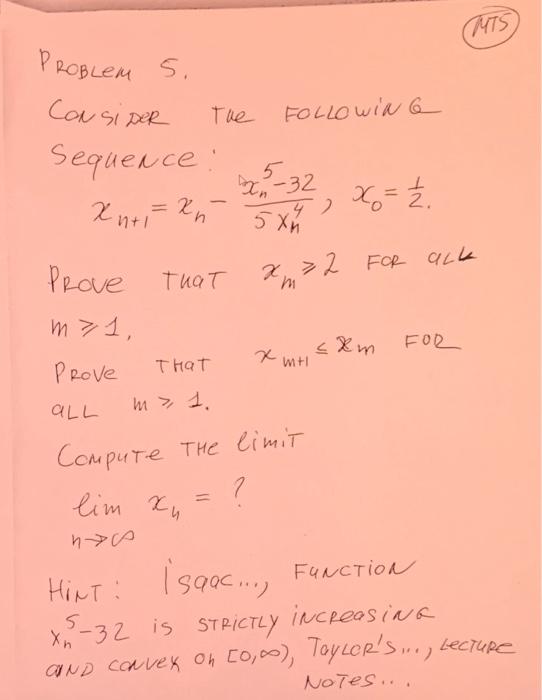 MTS
PROBLEM 5.
CONSIDER THE FOLLOWING
SEQUENCE:
xₙ₊₁ = xₙ - (xₙ⁵ - 32)/(5xₙ⁴), x₀ = 1/2.
PROVE THAT xₘ ⩾ 2 FOR ALL
m ⩾ 1,
PROVE THAT xₘ₊₁ ≤ xₘ FOR
ALL m ⩾ 1.
COMPUTE THE limiT
lim xₙ = ?
n→∞
HINT: Isaac..., FUNCTION
xₙ⁵ - 32 is STRICTLY INCREASING
AND CONVEX ON [0,∞), TAYLOR'S..., LECTURE
NOTES...